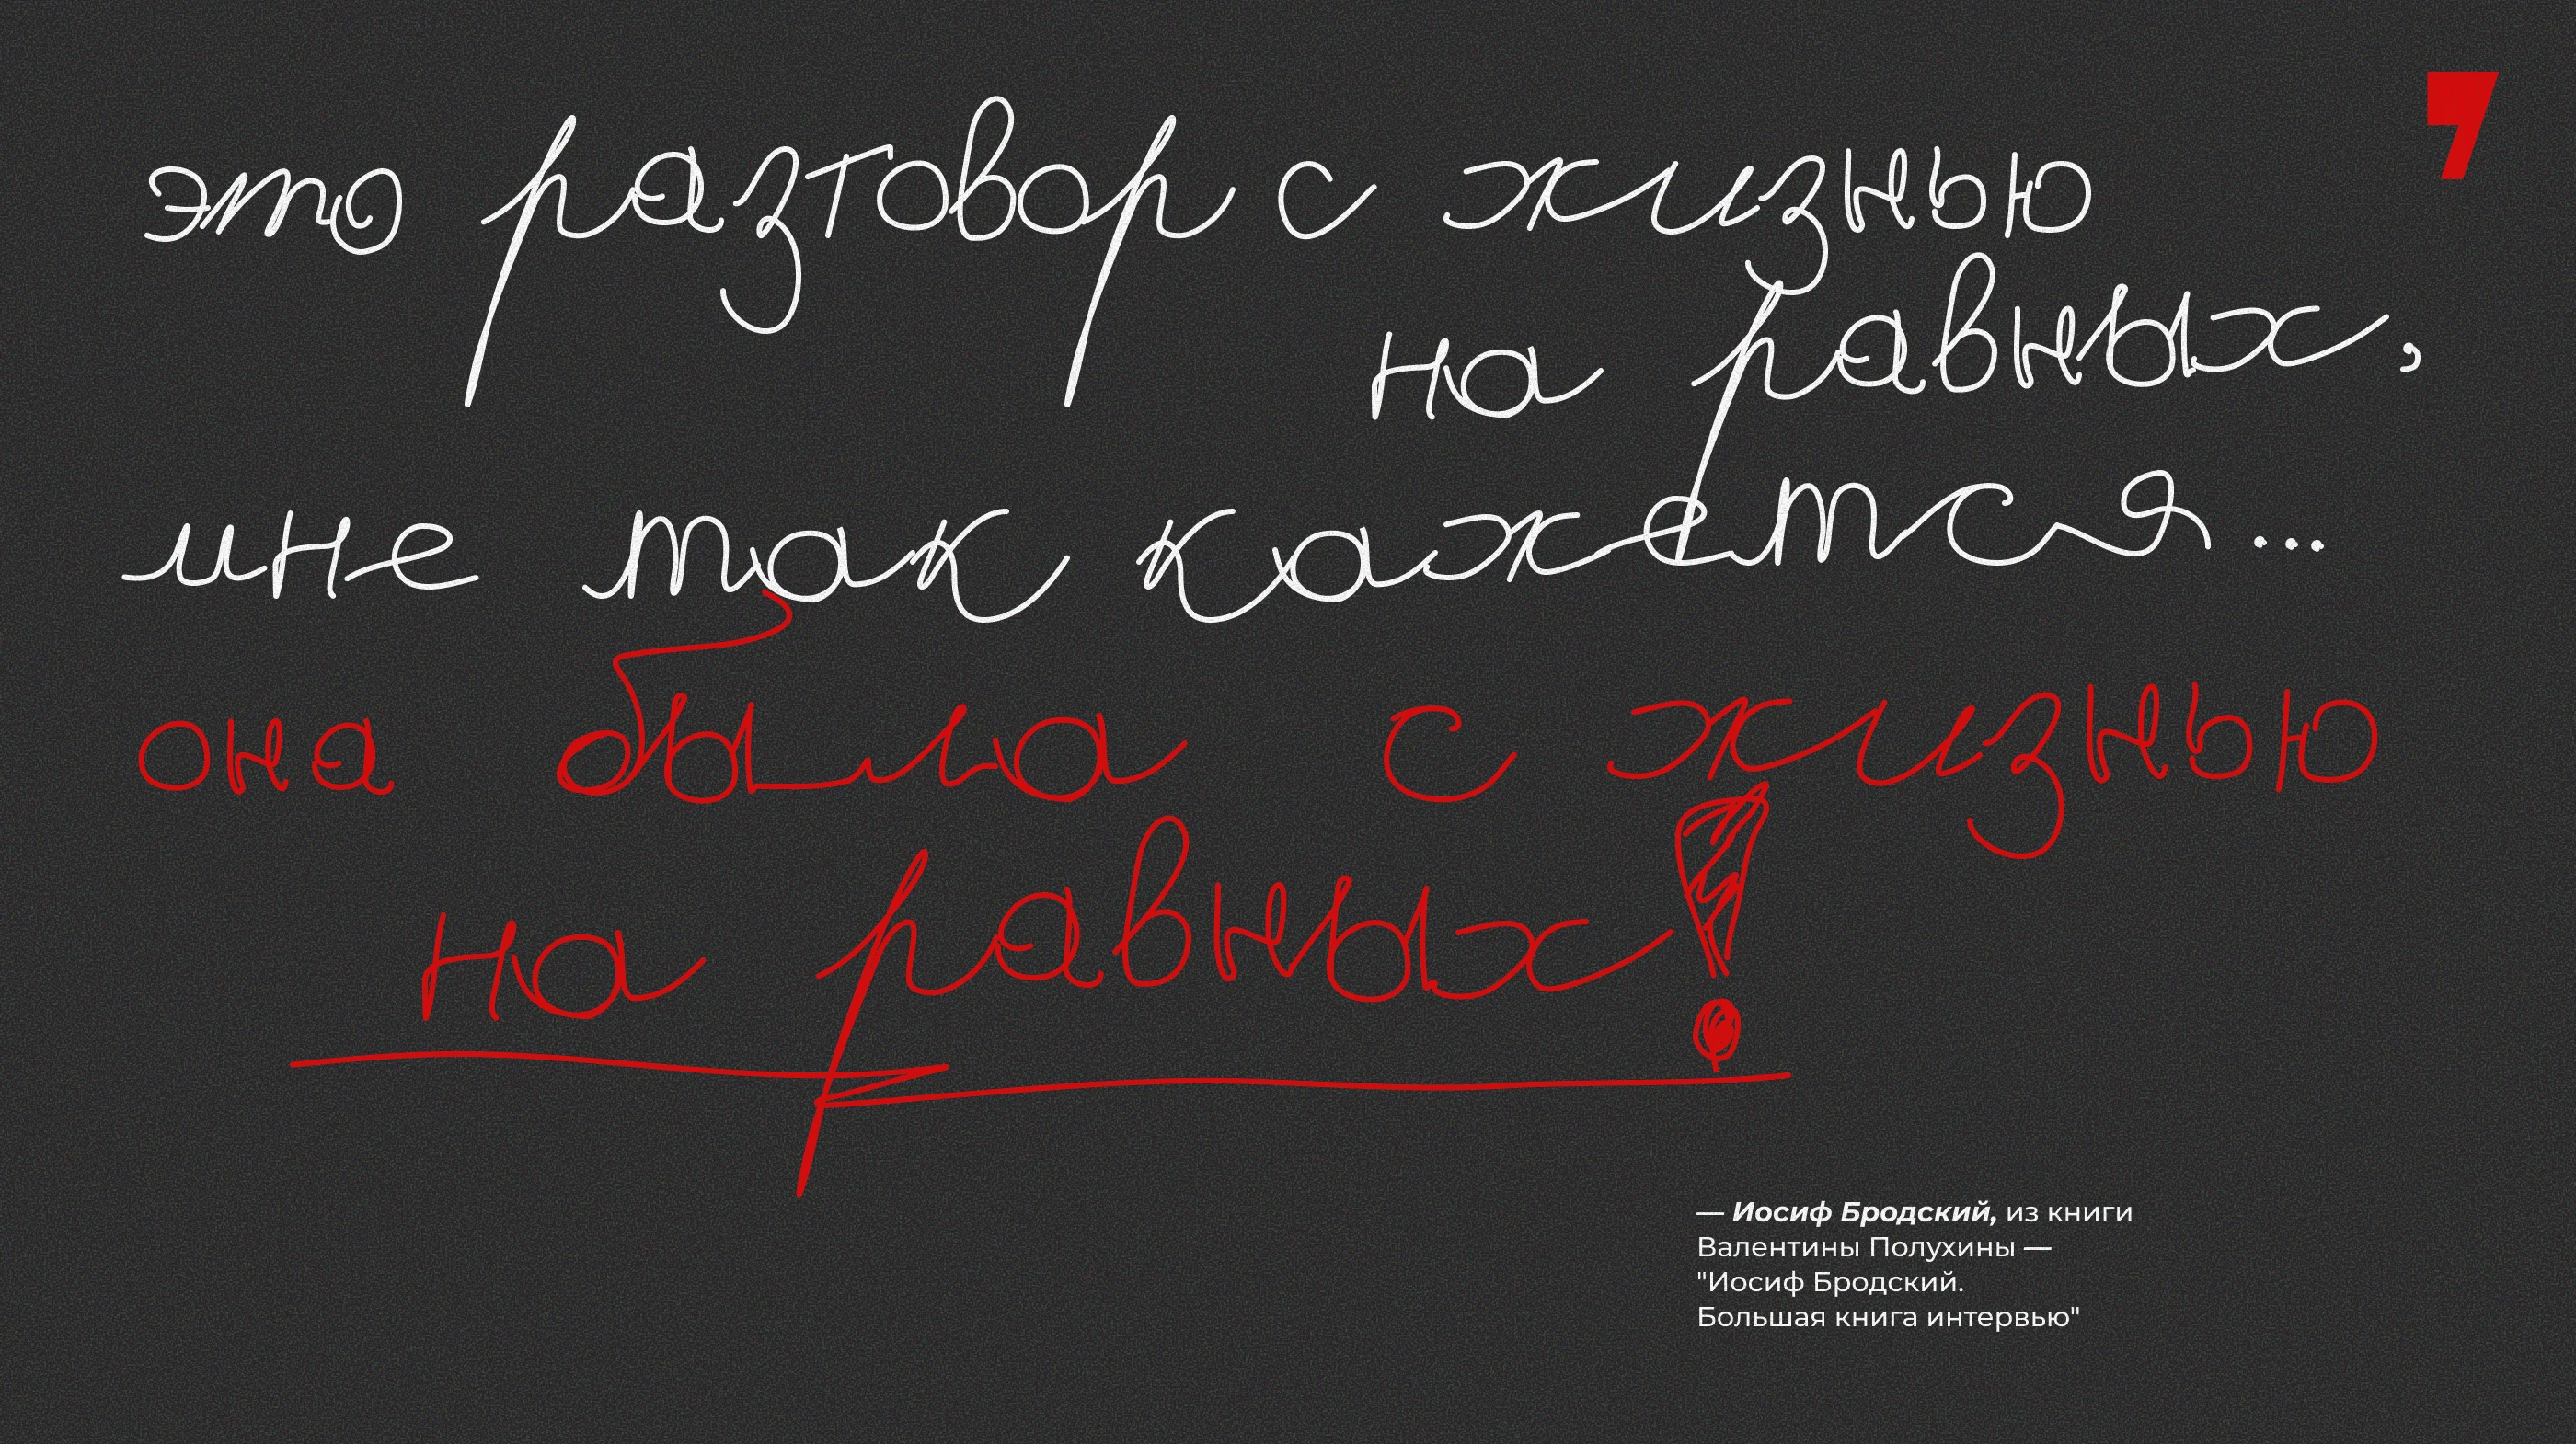 это разговор с жизнью
на равных,
мне так кажется...
она была с жизнью
на равных!
— Иосиф Бродский, из книги
Валентины Полухины —
"Иосиф Бродский.
Большая книга интервью"